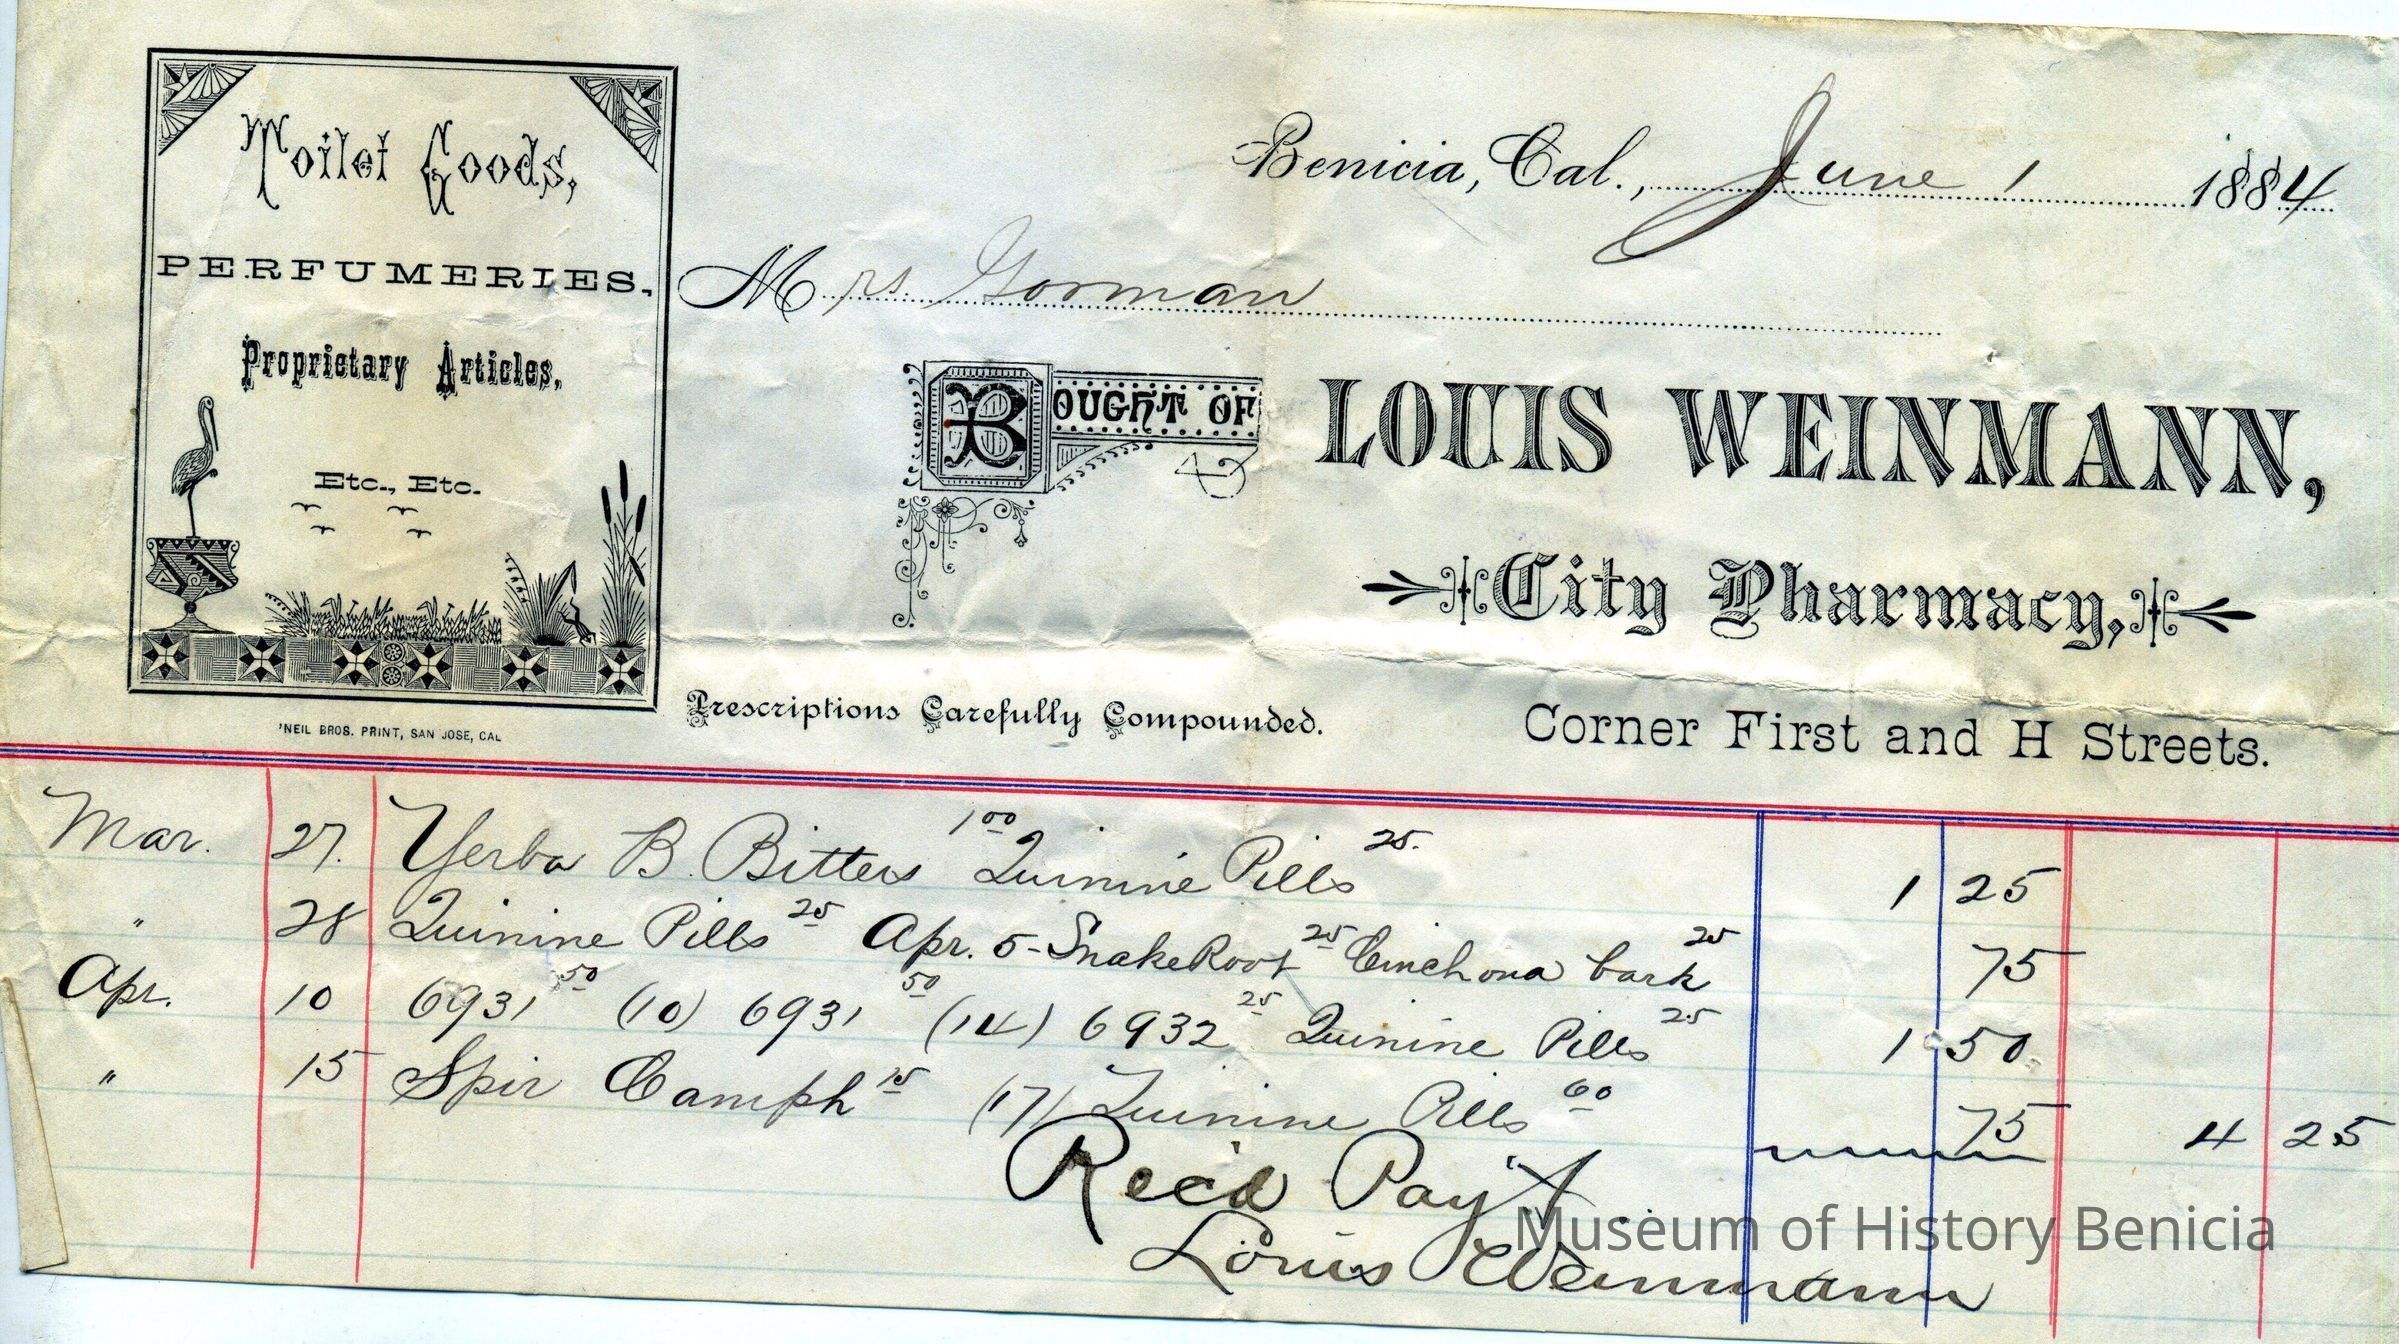 Toilet Goods,
PERFUMERIES,
Proprietary Articles,
Etc., Etc.
'NEIL BROS. PRINT, SAN JOSE, CAL
Benicia, Cal., June 1 1884
Mrs. Gorman
BOUGHT OF LOUIS WEINMANN,
City Pharmacy,
Prescriptions Carefully Compounded. Corner First and H Streets.
Mar. 27. Yerba B. Bitters 1 00 Quinine Pills 25. 1 25
" 28 Quinine Pills 25 Apr. 5 - Snake Root 25 Cinchona bark 25 75
Apr. 10 6931 50 (10) 6931 50 (14) 6932 25 Quinine Pills 25 1 50
" 15 Spir Camph 15 (17) Quinine Pills 60 75 4 25
Rec'd Pay't
Louis Weinmann
Museum of History Benicia